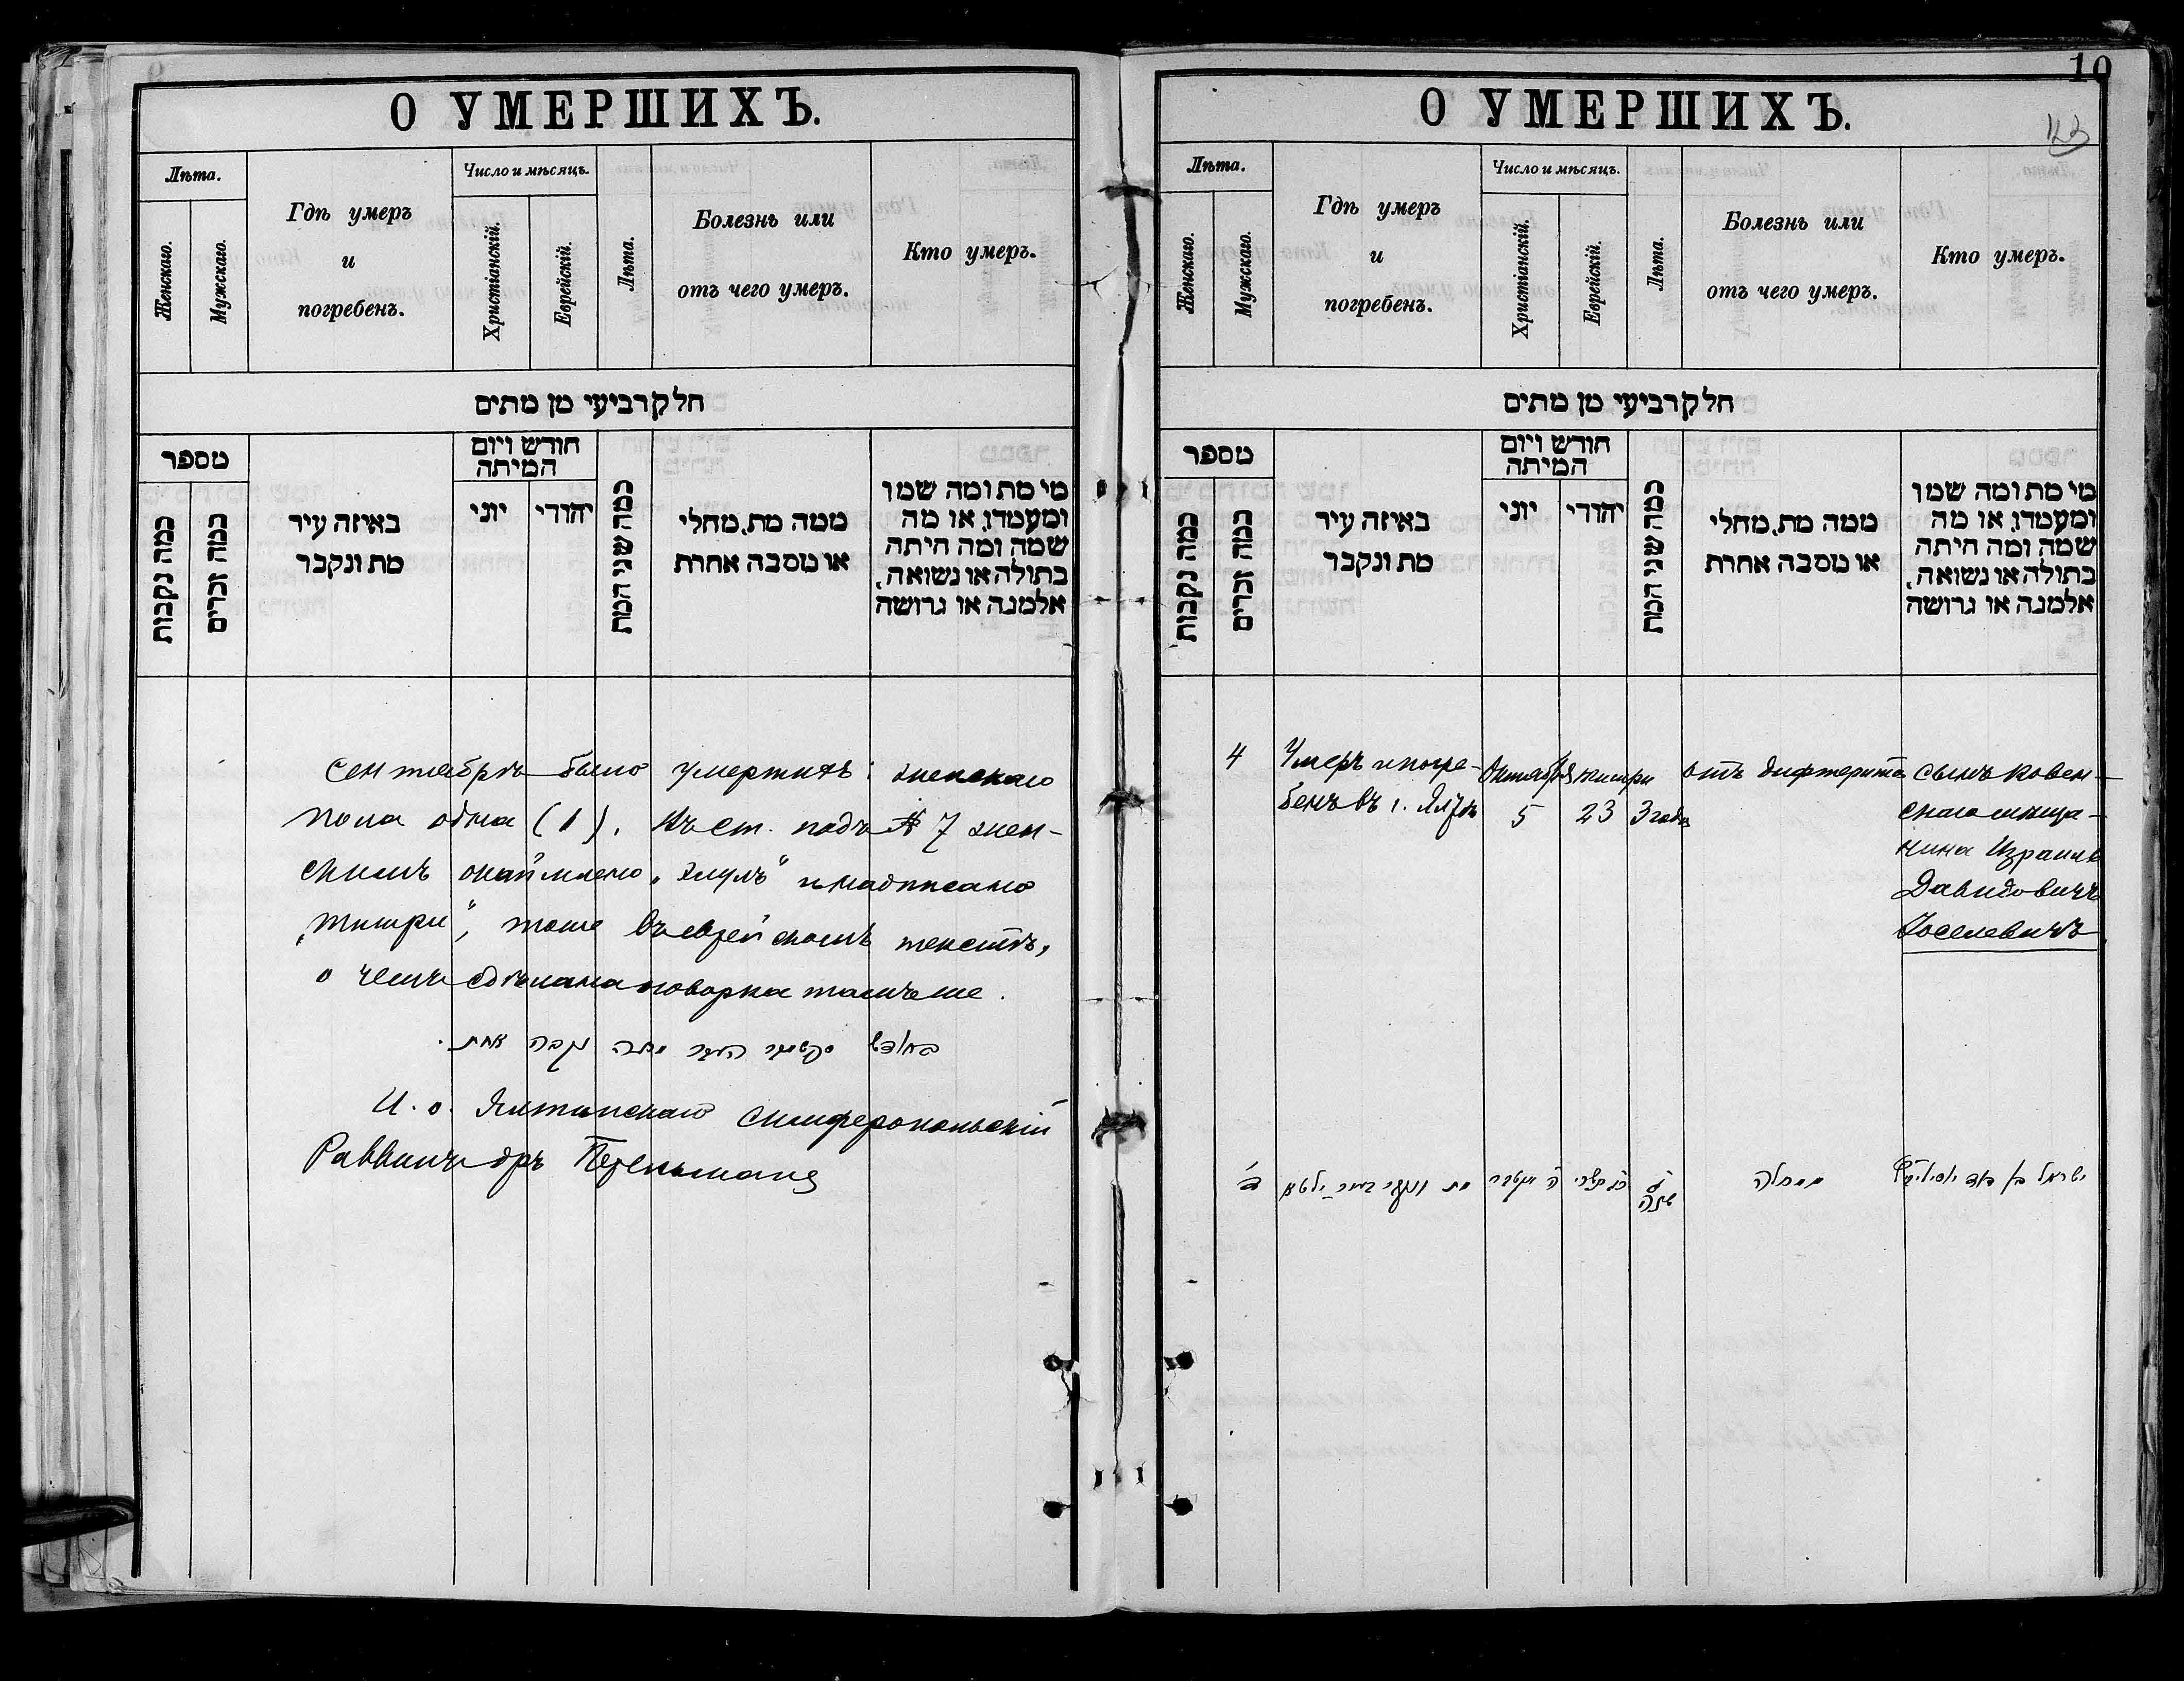 О УМЕРШИХЪ.
Лѣта.
Женскаго.
Мужскаго.
Гдѣ умеръ
и
погребенъ.
Число и мѣсяцъ.
Христіанскій.
Еврейскій.
Лѣта.
Болезнь или
отъ чего умеръ.
Кто умеръ.
חלק רביעי מן מתים
מספר
כמה נקבות
כמה זכרים
באיזה עיר
מת ונקבר
חודש ויום
המיתה
יוני
יהודי
כמה שני המת
ממה מת, מחלי
או מסבה אחרת
מי מת ומה שמו
ומעמדו, או מה
שמה ומה היתה
בתולה או נשואה,
אלמנה או גרושה
Сентябрѣ было умершихъ: женскаго
пола одна (1). Въ ст. подъ № 7 жен-
скимъ окаймлено „Элулъ“ и надписано
„тишри“, тоже въ еврейскомъ текстѣ,
о чемъ сдѣлана оговорка тамъ же.
נקבה אחת.
И. о. Ялтинскаго Симферопольскій
Раввинъ дръ
О УМЕРШИХЪ.
10
Лѣта.
Женскаго.
Мужскаго.
Гдѣ умеръ
и
погребенъ.
Число и мѣсяцъ.
Христіанскій.
Еврейскій.
Лѣта.
Болезнь или
отъ чего умеръ.
Кто умеръ.
חלק רביעי מן מתים
מספר
כמה נקבות
כמה זכרים
באיזה עיר
מת ונקבר
חודש ויום
המיתה
יוני
יהודי
כמה שני המת
ממה מת, מחלי
או מסבה אחרת
מי מת ומה שמו
ומעמדו, או מה
שמה ומה היתה
בתולה או נשואה,
אלמנה או גרושה
4
Умеръ и погре-
бенъ въ г. Ялтѣ
Октября
5
тишри
23
3 года
отъ дифтерита
сынъ ковен-
скаго мѣща-
нина Израиль
Давидовичъ
Іоселевичъ
ד׳
מת ונקבר בעיר ילטא
שנה
ממחלה
ישראל בן דוד